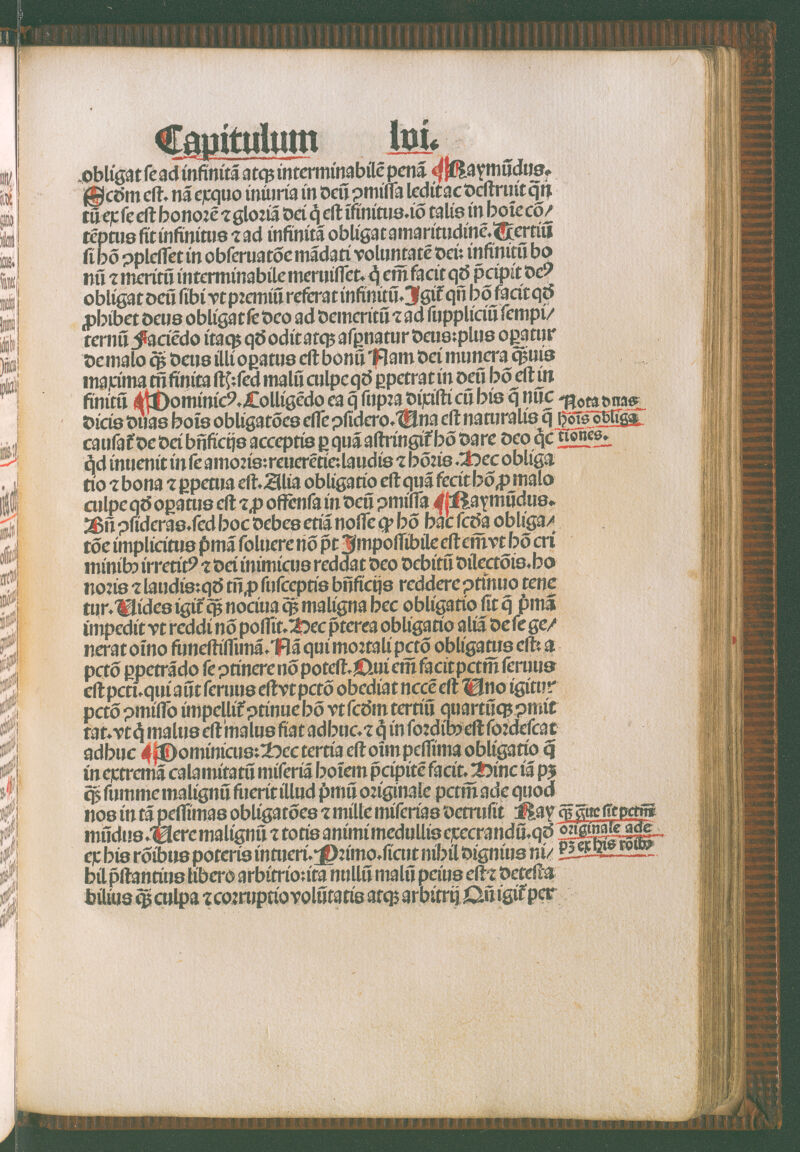 Capitulum lvi.
obligat se ad infinitā atqꝫ interminabilē penā ¶ Raymūdus.
Scd̄m est. nā exquo iniuria in deū ꝯmissa ledit ac destruit q̄n
tū ex se est honorē ⁊ gloriā dei q̇ est īfinitus. iō talis in hoīe cō/
tēptus fit infinitus ⁊ ad infinitā obligat amaritudinē. Tertiū
si hō ꝯplesset in obseruatōe mādati voluntatē dei: infinitū bo
nū ⁊ meritū interminabile meruisset. q̇ em̄ facit qd̄ p̄cipit deꝰ
obligat deū sibi vt premiū referat infinitū. Igit̄ qn̄ hō facit qd̄
ꝓhibet deus obligat se deo ad demeritū ⁊ ad suppliciū sempi/
ternū Faciēdo itaqꝫ qd̄ odit atqꝫ aspernatur deus: plus oꝑatur
de malo qꝫ̄ deus illi oꝑatus est bonū Nam dei munera qꝫ̄uis
maxima tn̄ finita st̄: sed malū culpe qd̄ ꝑpetrat in deū hō est in
finitū ¶ Dominicꝰ. Colligēdo ea q̄ supra dixisti cū his q̄ nūc
dicis duas hoīs obligatōes esse ꝯsidero. Una est naturalis q̄
causat̄ de dei bn̄ficijs acceptis ꝑ quā astringit̄ hō dare deo q̇c
q̇d inuenit in se amoris: reuerētie: laudis ⁊ hōris. Hec obliga
tio ⁊ bona ⁊ ꝑpetua est. Alia obligatio est quā fecit hō ꝓ malo
culpe qd̄ oꝑatus est ⁊ ꝓ offensa in deū ꝯmissa ¶ Raymūdus.
Bn̄ ꝯsideras. sed hoc debes etiā nosse ꝙ hō hac scd̄a obliga/
tōe implicitus p̄mā soluere nō pt̄ Impossibile est em̄ vt hō cri
minibꝫ irretitꝰ ⁊ dei inimicus reddat deo debitū dilectōis. ho
noris ⁊ laudis: qd̄ tn̄ ꝓ susceptis bn̄ficijs reddere ꝯtinuo tene
tur. Uides igit̄ qꝫ̄ nociua qꝫ̄ maligna hec obligatio sit q̄ p̄mā
impedit vt reddi nō possit. Hec p̄terea obligatio aliā de se ge/
nerat oīno funestissimā. Nā qui mortali pctō obligatus est: a
pctō ꝑpetrādo se ꝯtinere nō potest. Qui em̄ facit pctm̄ seruus
est pcti. qui aūt seruus est vt pctō obediat nccē est Uno igitur
pctō ꝯmisso impellit̄ ꝯtinue hō vt scd̄m tertiū quartūqꝫ ꝯmit
tat. vt q̇ malus est malus fiat adhuc. ⁊ q̇ in sordibꝫ est sordescat
adhuc ¶ Dominicus: Hec tertia est oīm pessima obligatio q̄
in extremā calamitatū miseriā hoīem p̄cipitē facit. Hinc iā pꝫ
qꝫ̄ summe malignū fuerit illud p̄mū originale pctm̄ ade quod
nos in tā pessimas obligatōes ⁊ mille miserias detrusit Ray
mūdus. Uere malignū ⁊ totis animi medullis execrandū. qd̄
ex his rōibus poteris intueri. Primo. sicut nihil dignius ni/
hil p̄stantius libero arbitrio: ita nullū malū peius est ⁊ detesta
bilius qꝫ̄ culpa ⁊ corruptio volūtatis atqꝫ arbitrij Qn̄ igit̄ per
Nota duas
hoīs obliga
tiones.
qꝫ̄ gͣue sit pctm̄
originale ade
pꝫ ex his rōibꝫ